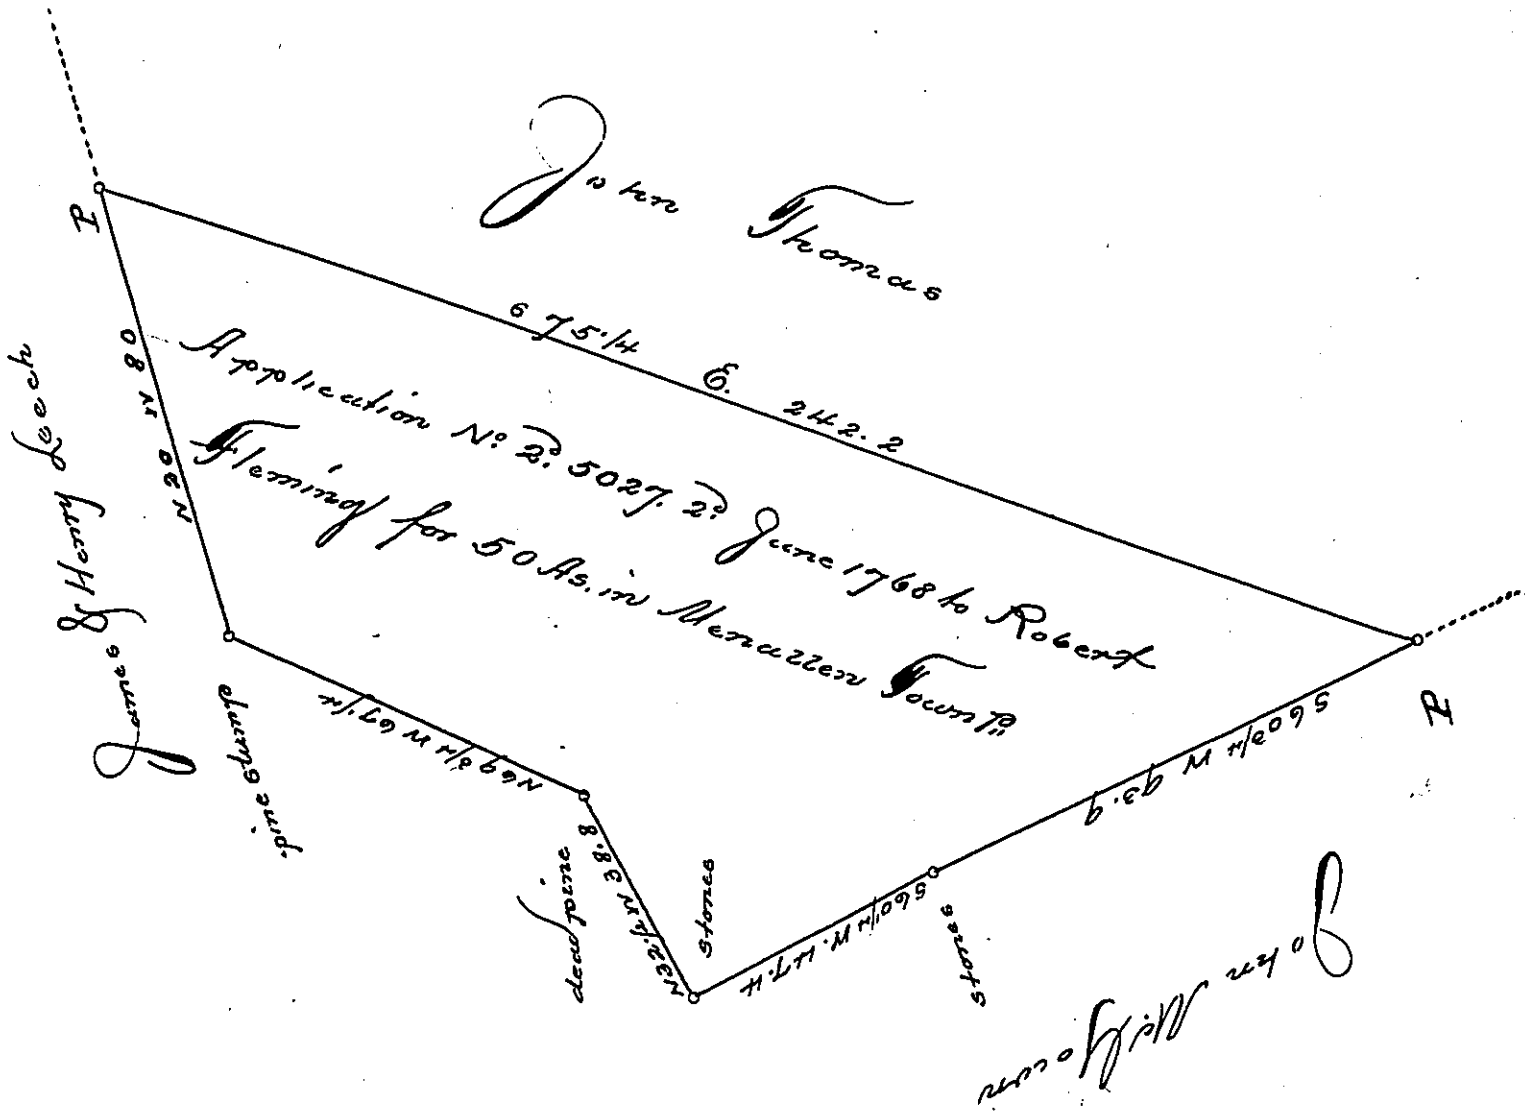 John Thomas
S 75 1/4 E. 242.2
Application No. 5027. 2d June 1768 to Robert
Fleming for 50 As. in Menallen Townp
P
N 20 W 80
James & Henry Leech
pine stump
N 69 3/4 W 67 1/4
dead pine
N 32 1/2 W 38.8
stones
S 60 1/4 W. 47.4
stones
S 60 3/4 W 93.9
P
John McGown